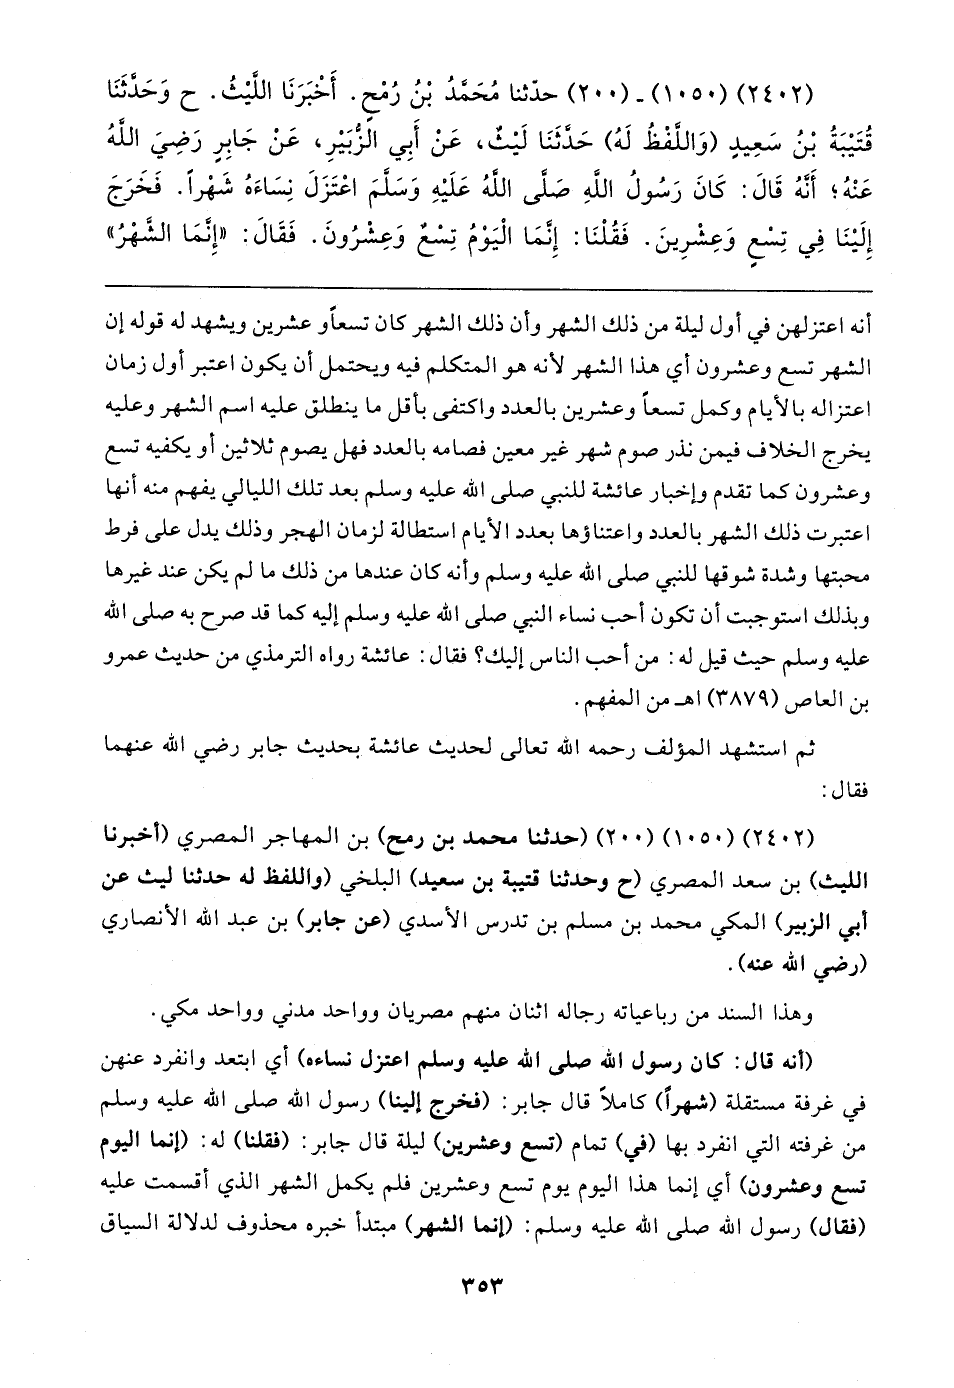 (٢٤٠٢) (١٠٥٠) ـ (٢٠٠) حدّثنا مُحَمَّدُ بْنُ رُمْحٍ. أَخْبَرَنَا اللَّيْثُ. ح وَحَدَّثَنَا
قُتَيْبَةُ بْنُ سَعِيدٍ (وَاللَّفْظُ لَهُ) حَدَّثَنَا لَيْثٌ، عَنْ أَبِي الزُّبَيْرِ، عَنْ جَابِرٍ رَضِيَ اللَّهُ
عَنْهُ؛ أَنَّهُ قَالَ: كَانَ رَسُولُ اللَّهِ صَلَّى اللَّهُ عَلَيْهِ وَسَلَّمَ اعْتَزَلَ نِسَاءَهُ شَهْراً. فَخَرَجَ
إِلَيْنَا فِي تِسْعٍ وَعِشْرِينَ. فَقُلْنَا: إِنَّمَا الْيَوْمُ تِسْعٌ وَعِشْرُونَ. فَقَالَ: «إِنَّمَا الشَّهْرُ»
أنه اعتزلهن في أول ليلة من ذلك الشهر وأن ذلك الشهر كان تسعاً و عشرين ويشهد له قوله إن
الشهر تسع وعشرون أي هذا الشهر لأنه هو المتكلم فيه ويحتمل أن يكون اعتبر أول زمان
اعتزاله بالأيام وكمل تسعاً وعشرين بالعدد واكتفى بأقل ما ينطلق عليه اسم الشهر وعليه
يخرج الخلاف فيمن نذر صوم شهر غير معين فصامه بالعدد فهل يصوم ثلاثين أو يكفيه تسع
وعشرون كما تقدم وإخبار عائشة للنبي صلى الله عليه وسلم بعد تلك الليالي يفهم منه أنها
اعتبرت ذلك الشهر بالعدد واعتناؤها بعدد الأيام استطالة لزمان الهجر وذلك يدل على فرط
محبتها وشدة شوقها للنبي صلى الله عليه وسلم وأنه كان عندها من ذلك ما لم يكن عند غيرها
وبذلك استوجبت أن تكون أحب نساء النبي صلى الله عليه وسلم إليه كما قد صرح به صلى الله
عليه وسلم حيث قيل له: من أحب الناس إليك؟ فقال: عائشة رواه الترمذي من حديث عمرو
بن العاص (٣٨٧٩) اهـ من المفهم.
ثم استشهد المؤلف رحمه الله تعالى لحديث عائشة بحديث جابر رضي الله عنهما
فقال:
(٢٤٠٢) (١٠٥٠) (٢٠٠) (حدثنا محمد بن رمح) بن المهاجر المصري (أخبرنا
الليث) بن سعد المصري (ح وحدثنا قتيبة بن سعيد) البلخي (واللفظ له حدثنا ليث عن
أبي الزبير) المكي محمد بن مسلم بن تدرس الأسدي (عن جابر) بن عبد الله الأنصاري
(رضي الله عنه).
وهذا السند من رباعياته رجاله اثنان منهم مصريان وواحد مدني وواحد مكي.
(أنه قال: كان رسول الله صلى الله عليه وسلم اعتزل نساءه) أي ابتعد وانفرد عنهن
في غرفة مستقلة (شهراً) كاملاً قال جابر: (فخرج إلينا) رسول الله صلى الله عليه وسلم
من غرفته التي انفرد بها (في) تمام (تسع وعشرين) ليلة قال جابر: (فقلنا) له: (إنما اليوم
تسع وعشرون) أي إنما هذا اليوم يوم تسع وعشرين فلم يكمل الشهر الذي أقسمت عليه
(فقال) رسول الله صلى الله عليه وسلم: (إنما الشهر) مبتدأ خبره محذوف لدلالة السياق
٣٥٣